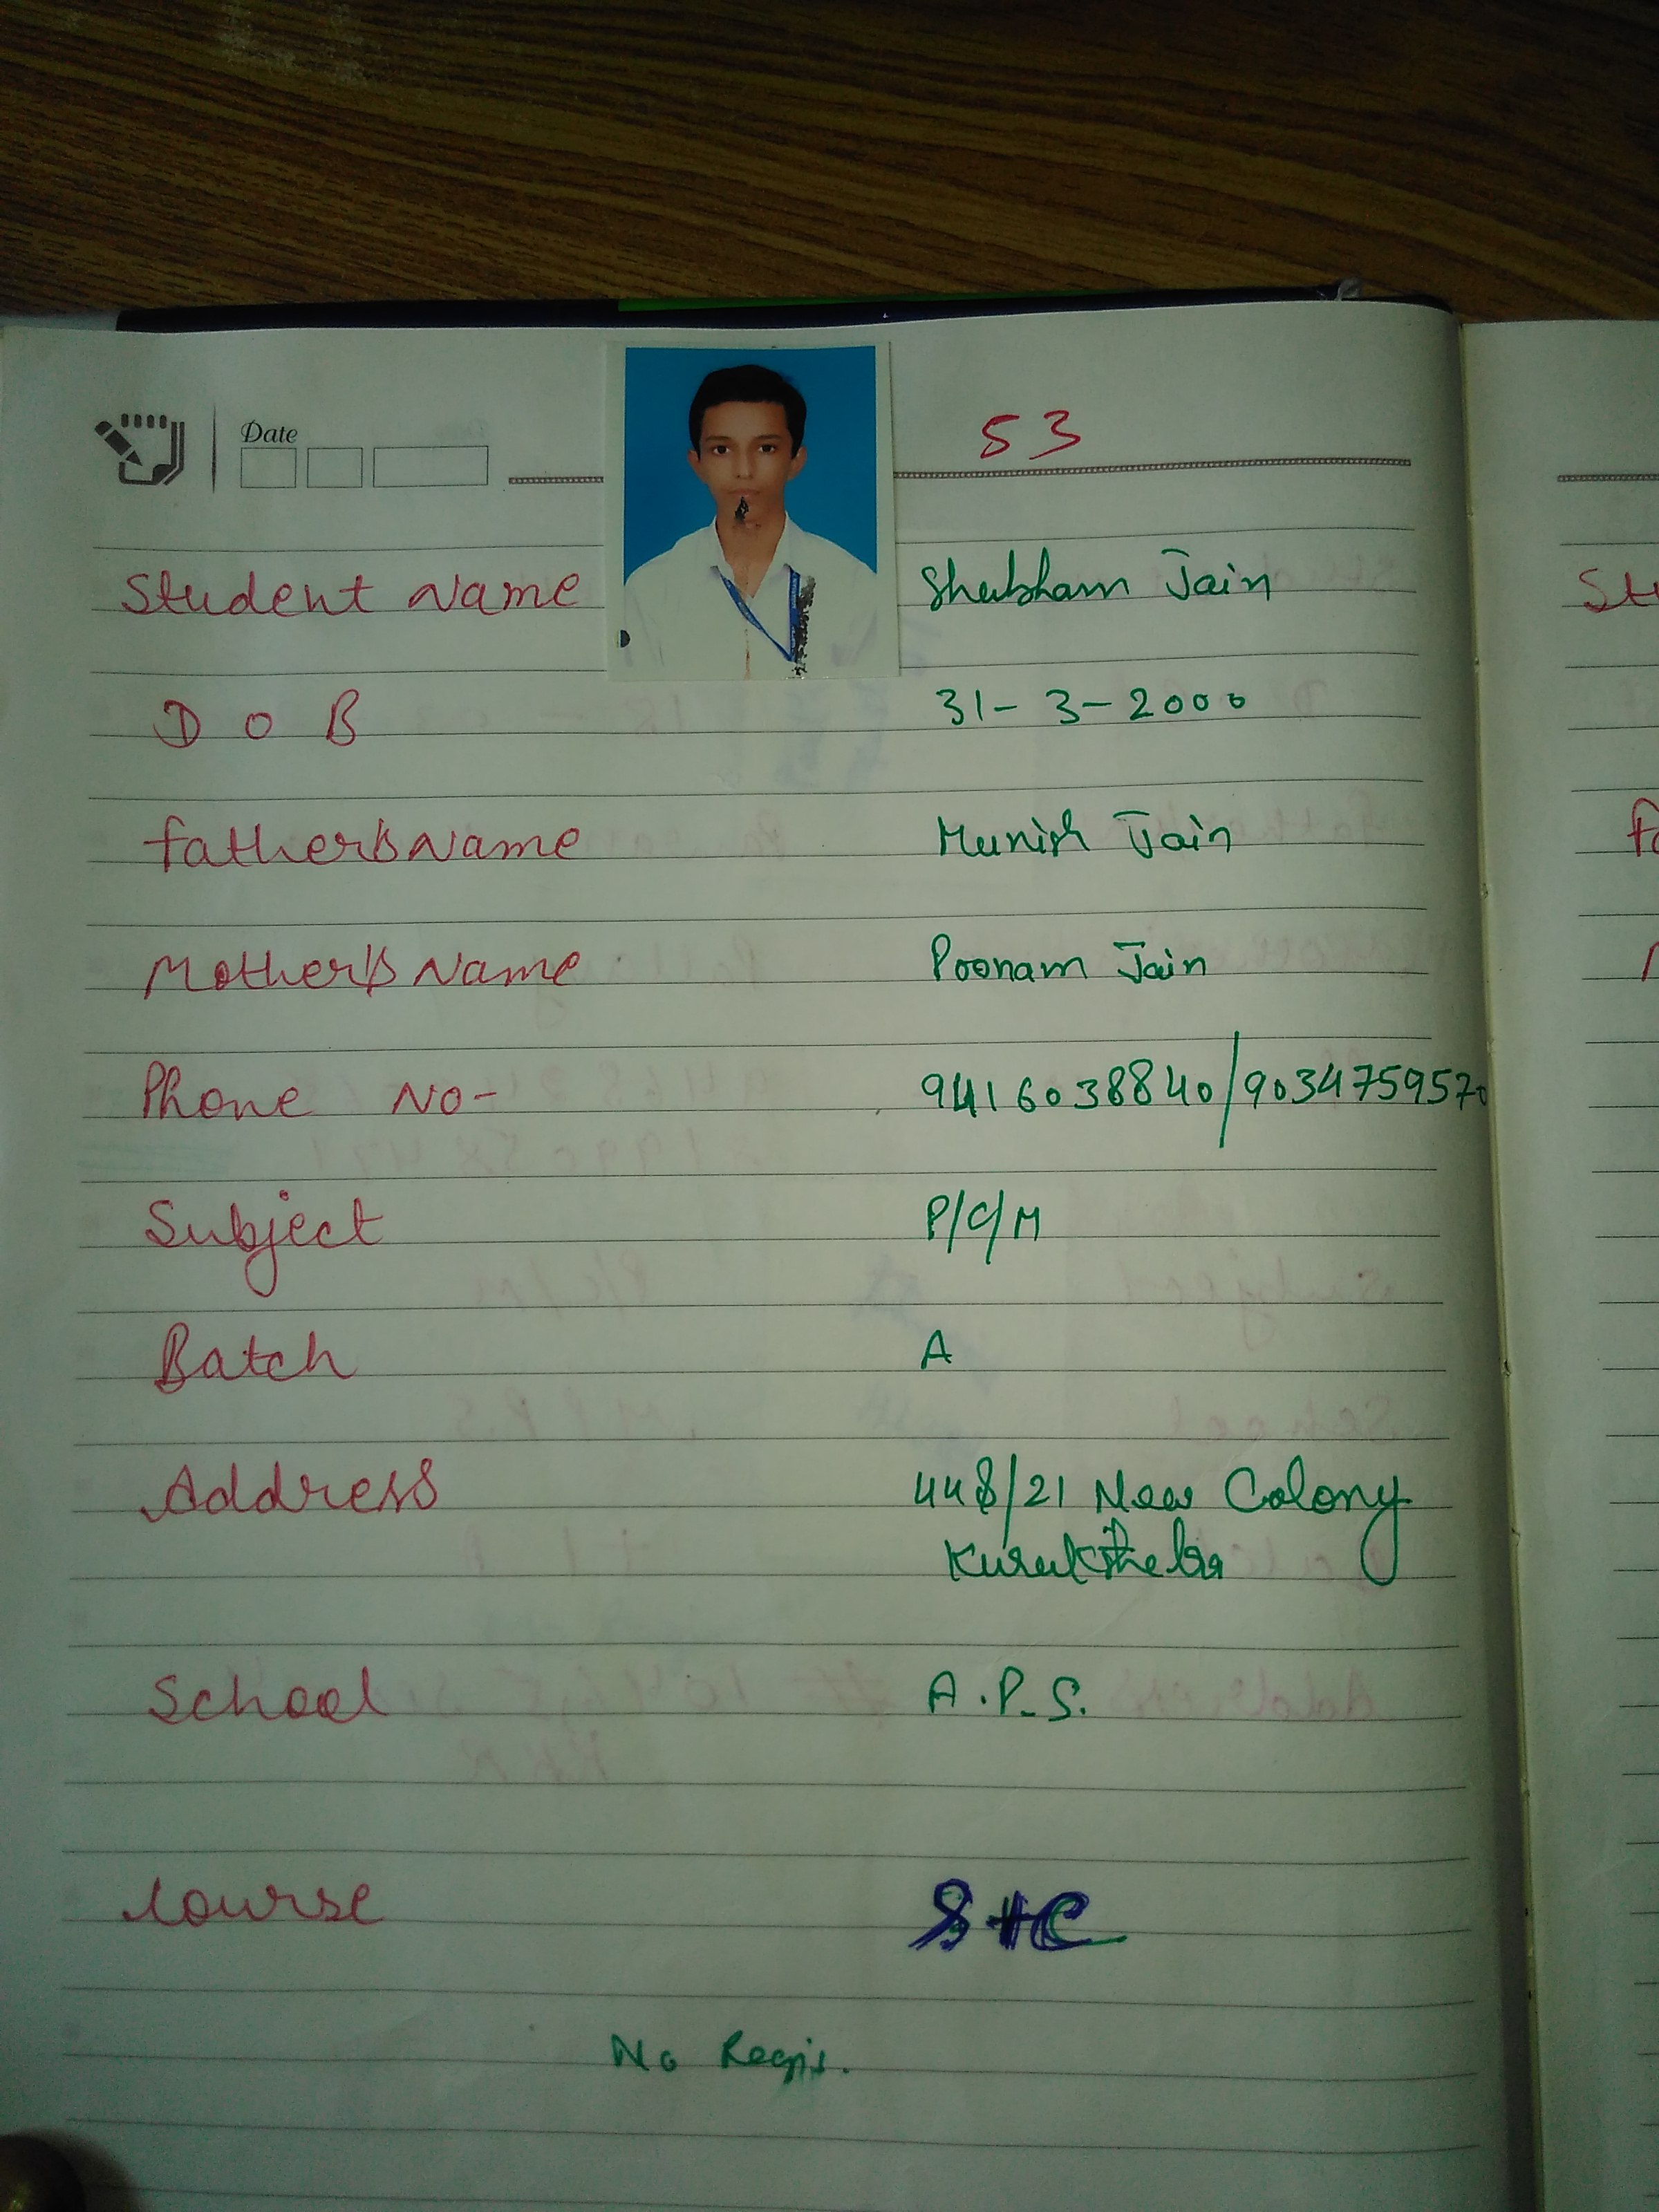 Date
53
Student Name Shubham Jain
D O B 31-3-2000
Father's Name Munish Jain
Mother's Name Poonam Jain
Phone No- 9416038840/9034759570
Subject P/C/M
Batch A
Address 448/21 New Colony
Kurukshetra
School A.P.S.
Course
No Regis.